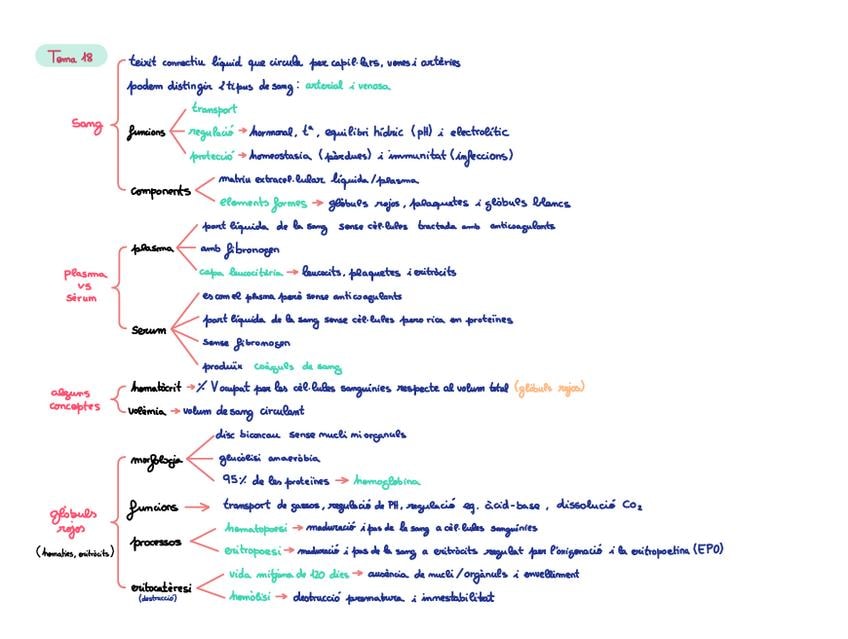 Tema 18
Sang
teixit connectiu líquid que circula per capil·lars, venes i artèries
podem distingir 2 tipus de sang: arterial i venosa
funcions
transport
regulació → hormonal, tª, equilibri hídric (pH) i electrolític
protecció → homeostasia (pèrdues) i immunitat (infeccions)
components
matriu extracel·lular líquida/plasma
elements formes → glòbuls rojos, plaquetes i glòbuls blancs
plasma
vs
sèrum
plasma
part líquida de la sang sense cèl·lules tractada amb anticoagulants
amb fibronogen
capa leucocitèria → leucocits, plaquetes i eritròcits
serum
es com el plasma però sense anticoagulants
part líquida de la sang sense cèl·lules pero rica en proteïnes
sense fibronogen
produïx coàguls de sang
alguns
conceptes
hematòcrit → % V ocupat per les cèl·lules sanguínies respecte al volum total (glòbuls rojos)
volèmia → volum de sang circulant
glòbuls
rojos
(hematies, eritròcits)
morfologia
disc biconcau sense nucli ni organuls
glucòlisi anaeròbia
95% de les proteïnes → hemoglobina
funcions → transport de gasos, regulació de PH, regulació eq. àcid-base, dissolució CO₂
processos
hematopoesi → maduració i pas de la sang a cèl·lules sanguínies
eritropoesi → maduració i pas de la sang a eritròcits regulat per l'oxigenació i la eritropoetina (EPO)
eritocatèresi
(destrucció)
vida mitjana de 120 dies → ausència de nucli/orgànuls i envelliment
hemòlisi → destrucció prematura i innestabilitat